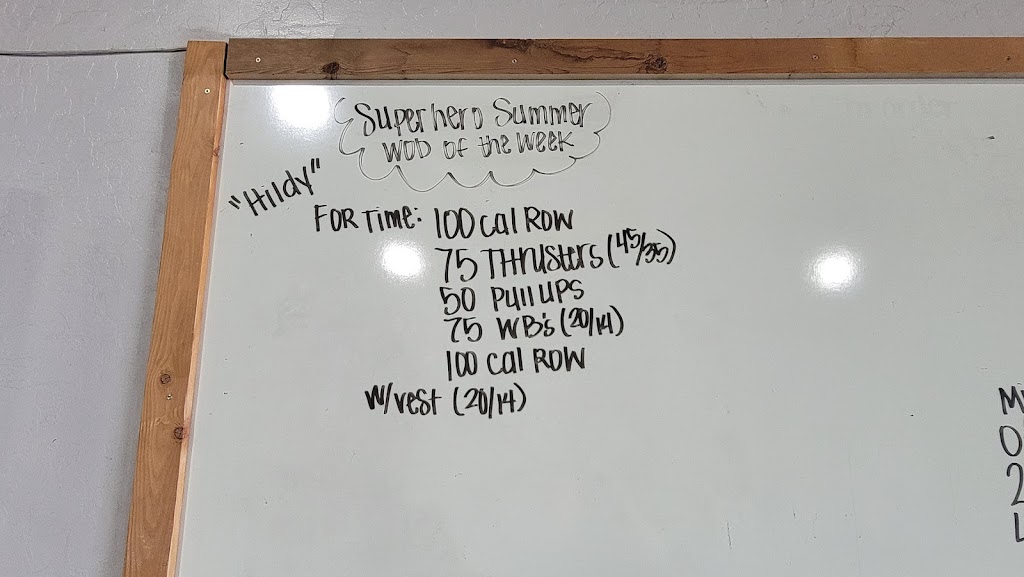 Superhero Summer
WOD OF the WEEK
"Hildy"
FOR TIME: 100 cal ROW
75 THrusters (45/35)
50 Pull ups
75 WB's (20/14)
100 cal ROW
w/vest (20/14)